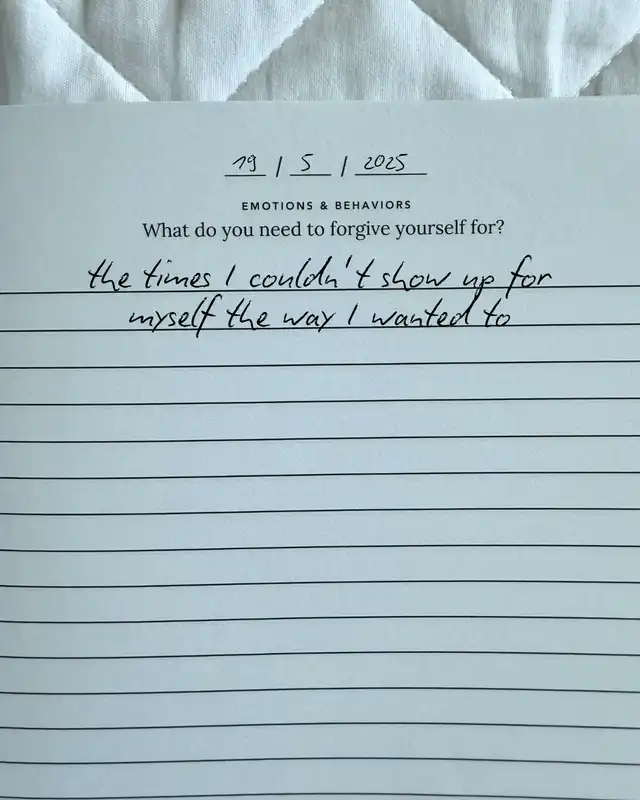 19 / 5 / 2025
EMOTIONS & BEHAVIORS
What do you need to forgive yourself for?
the times I couldn't show up for
myself the way I wanted to